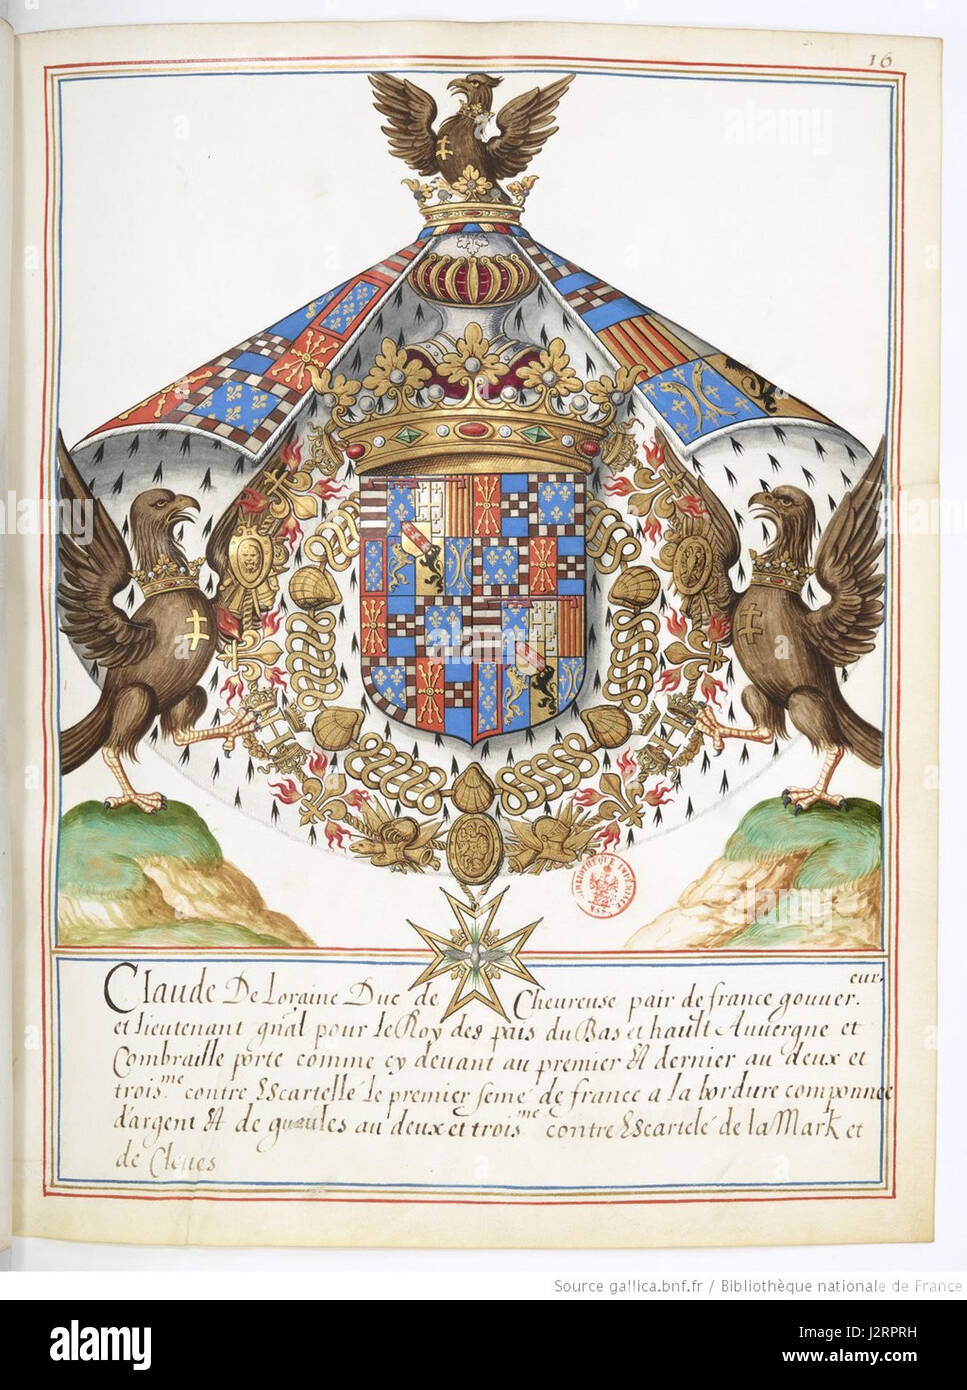 16
Claude De Loraine Duc de Cheureuse pair de france gouuer.eur
et lieutenant gñal pour le Roy des païs du Bas et hault Auuergne et
Combraille porte comme cy deuant au premier Et dernier au deux et
trois.me contre Escartellé le premier semé de france a la bordure componnee
d'argent Et de gueules au deux et trois.me contre Escartelé de la Mark et
de Cleues
BIBLIOTHÈQUE IMPÉRIALE MSS.
Source gallica.bnf.fr / Bibliothèque nationale de France
alamy
Image ID: J2RPRH
www.alamy.com